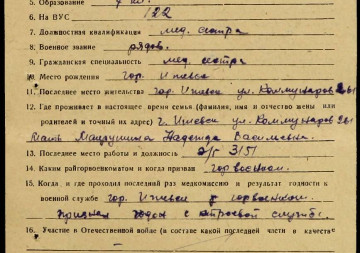 5. Образование 7 кл.
6. На ВУС 122
7. Должностная квалификация мед. сестра
8. Военное звание рядов.
9. Гражданская специальность мед. сестра
10. Место рождения гор. Ижевск
11. Последнее место жительства гор. Ижевск ул. Коммунаров
12. Где проживает в настоящее время семья (фамилия, имя и отчество жены или
родителей и точный их адрес) г. Ижевск ул. Коммунаров
Мать Надежда Васильевна
13. Последнее место работы и должность э/г 3151
14. Каким райгорвоенкоматом и когда призван горвоенком.
15. Когда, и где проходил последний раз медкомиссию и результат годности к
военной службе гор. Ижевск горвоенком.
признан годен к строевой службе.
16. Участие в Отечественной войне (в составе какой последней части и в качестве